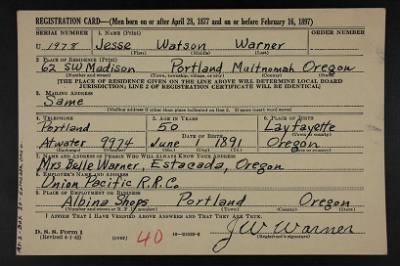 REGISTRATION CARD—(Men born on or after April 28, 1877 and on or before February 16, 1897)
SERIAL NUMBER 1. NAME (Print) ORDER NUMBER
U 1978 Jesse Watson Warner
(First) (Middle) (Last)
2. PLACE OF RESIDENCE (Print)
62 SW Madison Portland Multnomah Oregon
(Number and street) (Town, township, village, or city) (County) (State)
[THE PLACE OF RESIDENCE GIVEN ON THE LINE ABOVE WILL DETERMINE LOCAL BOARD
JURISDICTION; LINE 2 OF REGISTRATION CERTIFICATE WILL BE IDENTICAL]
3. MAILING ADDRESS
Same
[Mailing address if other than place indicated on line 2. If same insert word same]
4. TELEPHONE 5. AGE IN YEARS 6. PLACE OF BIRTH
Portland 50 Layfayette
DATE OF BIRTH
Atwater 9974 June 1891 Oregon
7. NAME AND ADDRESS OF PERSON WHO WILL ALWAYS KNOW YOUR ADDRESS
Mrs Belle Warner, Estacada, Oregon
8. EMPLOYER'S NAME AND ADDRESS
Union Pacific R.R. Co.
9. PLACE OF EMPLOYMENT OR BUSINESS
Albina Shops Portland Oregon
(Number and street or R. F. D. number) (Town) (County) (State)
I AFFIRM THAT I HAVE VERIFIED ABOVE ANSWERS AND THAT THEY ARE TRUE.
D. S. S. Form 1
(Revised 4-1-42) (over) 40
J W Warner
(Registrant's signature)